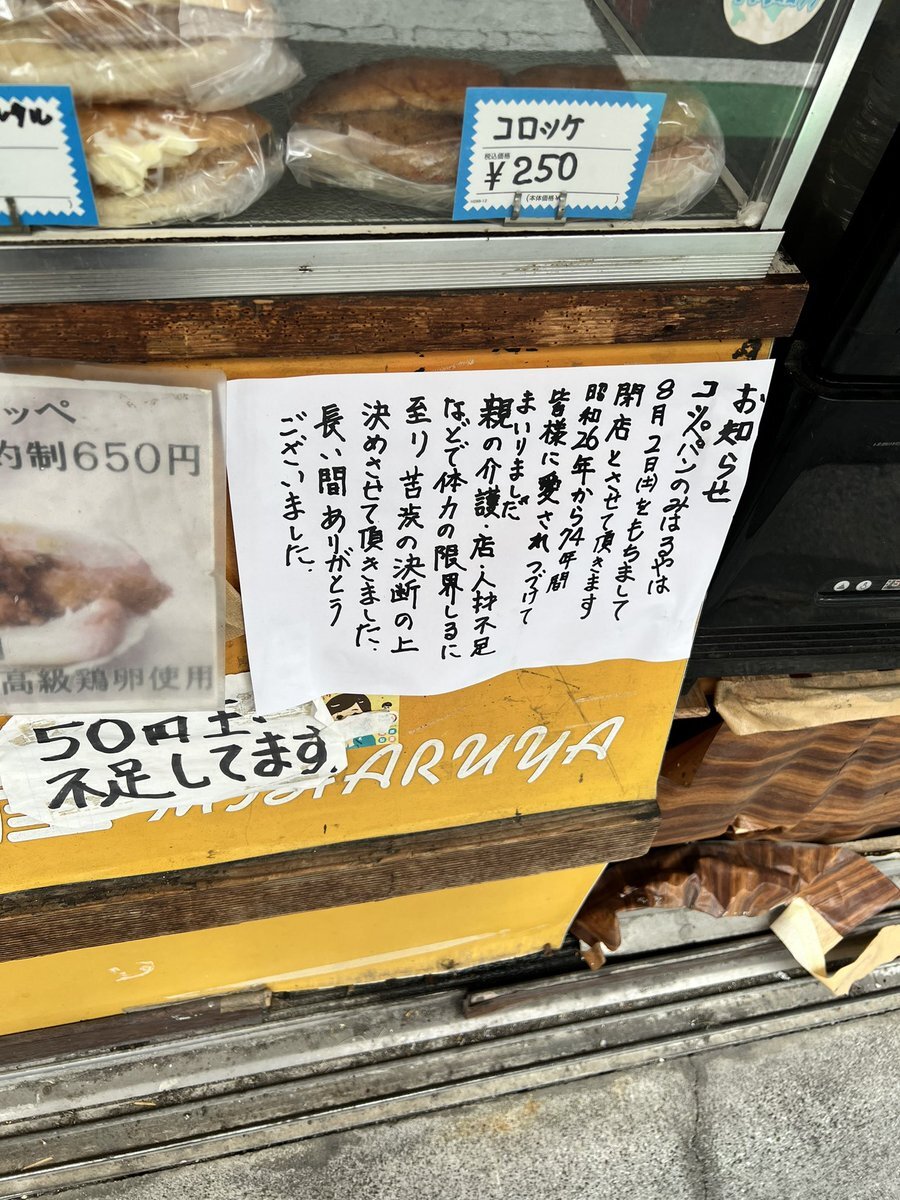 タル
コロッケ
税込価格
¥250
(本体価格¥
お知らせ
コッペパンのみはるやは
8月2日(土)をもちまして
閉店とさせて頂きます
昭和26年から74年間
皆様に愛されつづけて
まいりましだ
親の介護・店・人材不足
などで体力の限界しるに
至り 苦渋の決断の上
決めさせて頂きました.
長い間ありがとう
ございました.
ッペ
約制650円
高級鶏卵使用
50円玉、
不足してます.
MIHARUYA